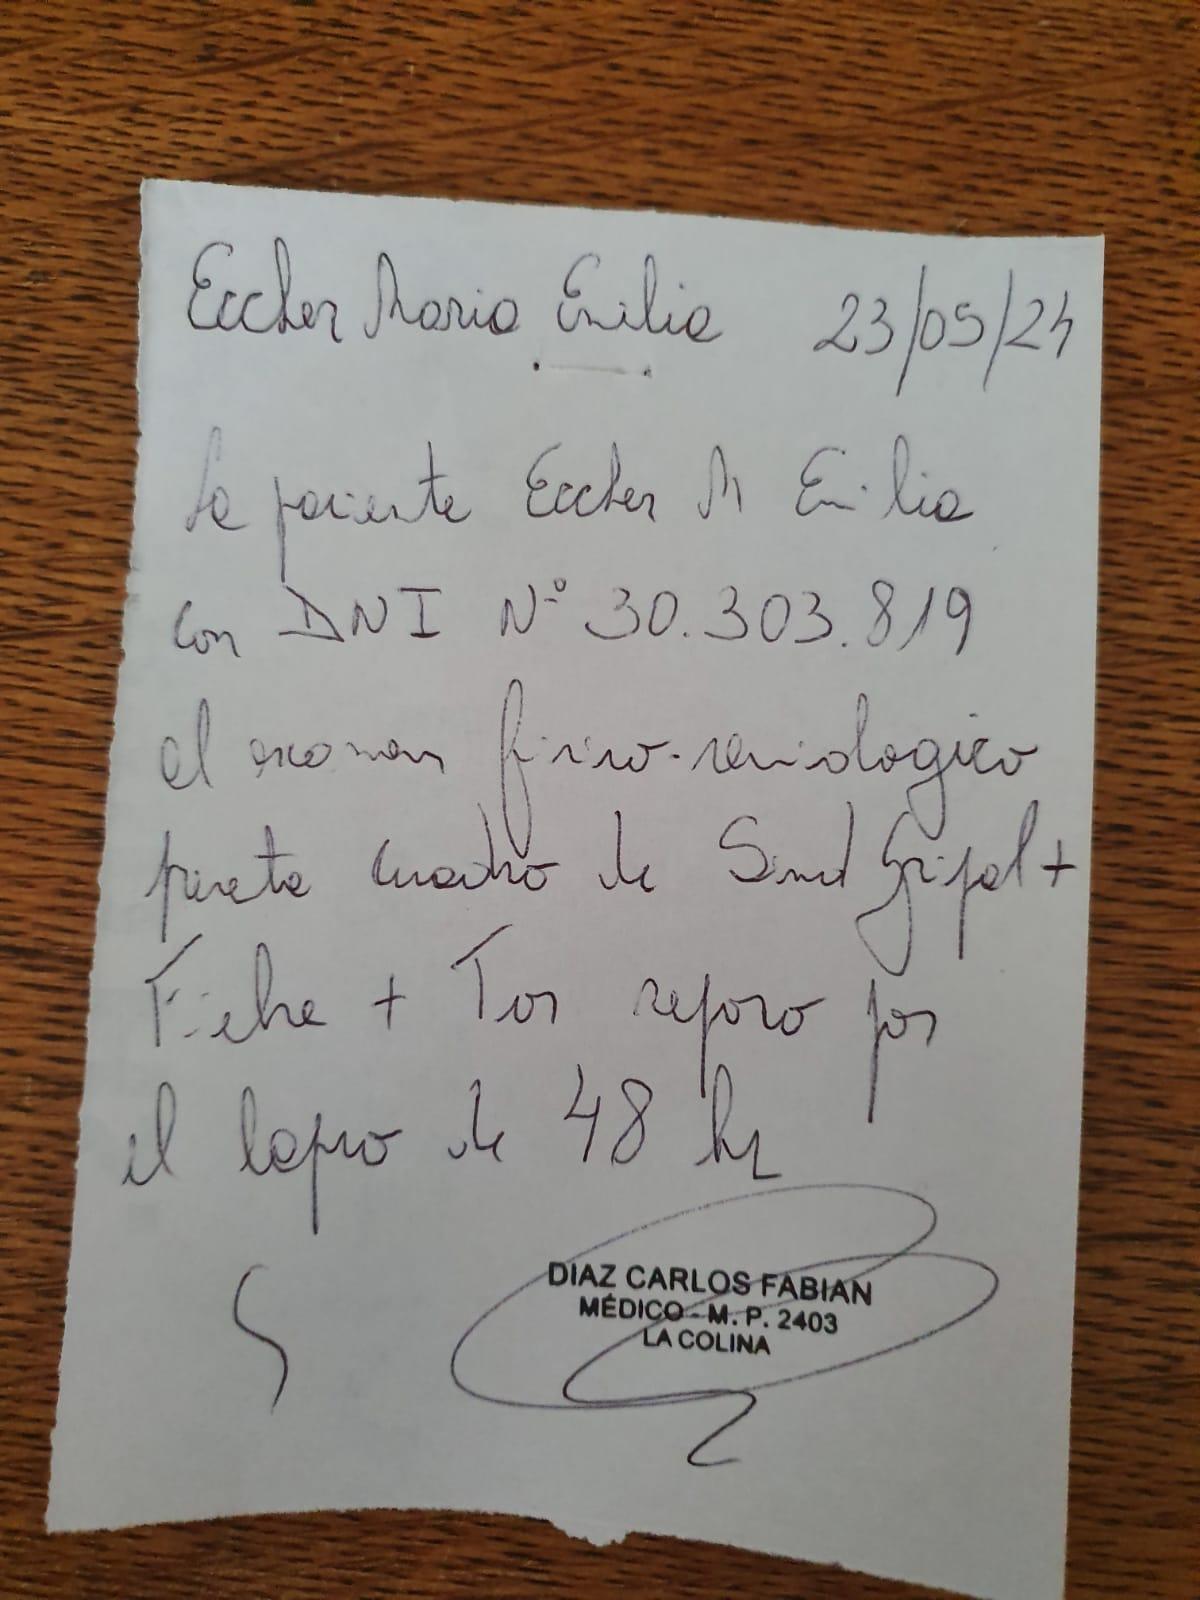 Eccher Maria Emilia 23/05/24
La paciente Eccher M Emilia
con DNI N° 30.303.819
el examen fisico-semiologico
preseta cuadro de Sind Gripal +
Fiebre + Tos reposo por
el lapso de 48 hs
DIAZ CARLOS FABIAN
MÉDICO - M. P. 2403
LA COLINA